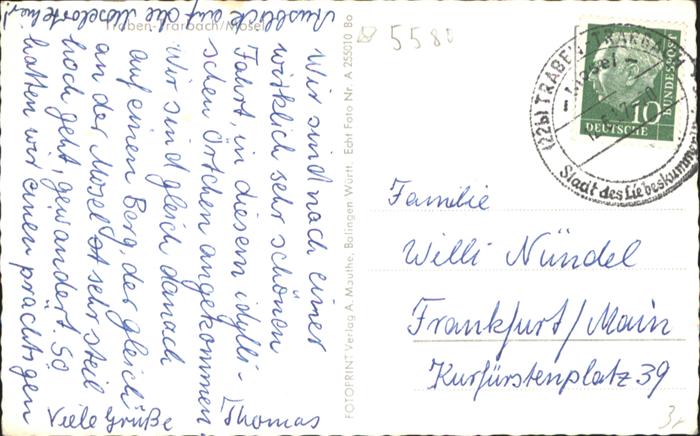 Traben-Trarbach/Mosel
Wir sind nach einer
wirklich sehr schönen
Fahrt, in diesem idylli-
schen Örtchen angekommen
Wir sind gleich danach
auf einen Berg, der gleich
an der Mosel ist sehr steil
hoch geht, gewandert. So
hatten wir einen prächtigen
Ausblick auf die
Viele Grüße
Thomas
FOTOPRINT Verlag A. Mauthe, Balingen Württ. Echt Foto Nr. A 255010 Bo
5580
(22b) TRABEN-TRARBACH
- Mosel -
Stadt des Liebeskummer
10
DEUTSCHE
BUNDESPOST
Familie
Willi Nündel
Frankfurt/Main
Kurfürstenplatz 39